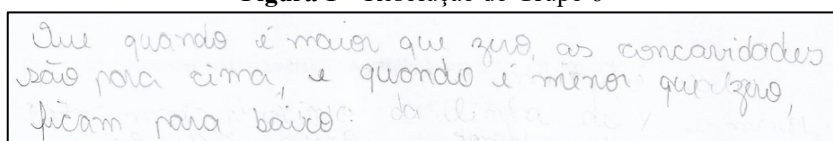 Que quando é maior que zero, as concavidades
são para cima, e quando é menor que zero,
ficam para baixo.